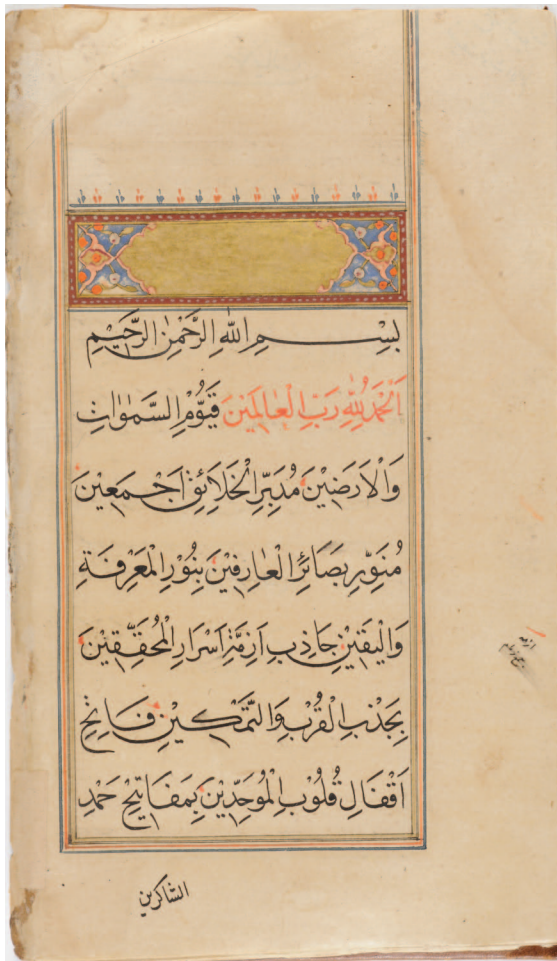 بِسْمِ اللّٰهِ الرَّحْمٰنِ الرَّحِيْمِ
اَلْحَمْدُ لِلّٰهِ رَبِّ الْعَالَمِيْنَ قَيُّوْمِ السَّمٰوَاتِ
وَالْاَرَضِيْنَ مُدَبِّرِ الْخَلَائِقِ اَجْمَعِيْنَ
مُنَوِّرِ بَصَائِرِ الْعَارِفِيْنَ بِنُوْرِ الْمَعْرِفَةِ
وَالْيَقِيْنِ جَاذِبِ اَزِمَّةِ اَسْرَارِ الْمُحَقِّقِيْنَ
بِجَذْبِ الْقُرْبِ وَالتَّمْكِيْنِ فَاتِحِ
اَقْفَالِ قُلُوْبِ الْمُوَحِّدِيْنَ بِمَفَاتِيْحِ حَمْدِ
الشاكرين